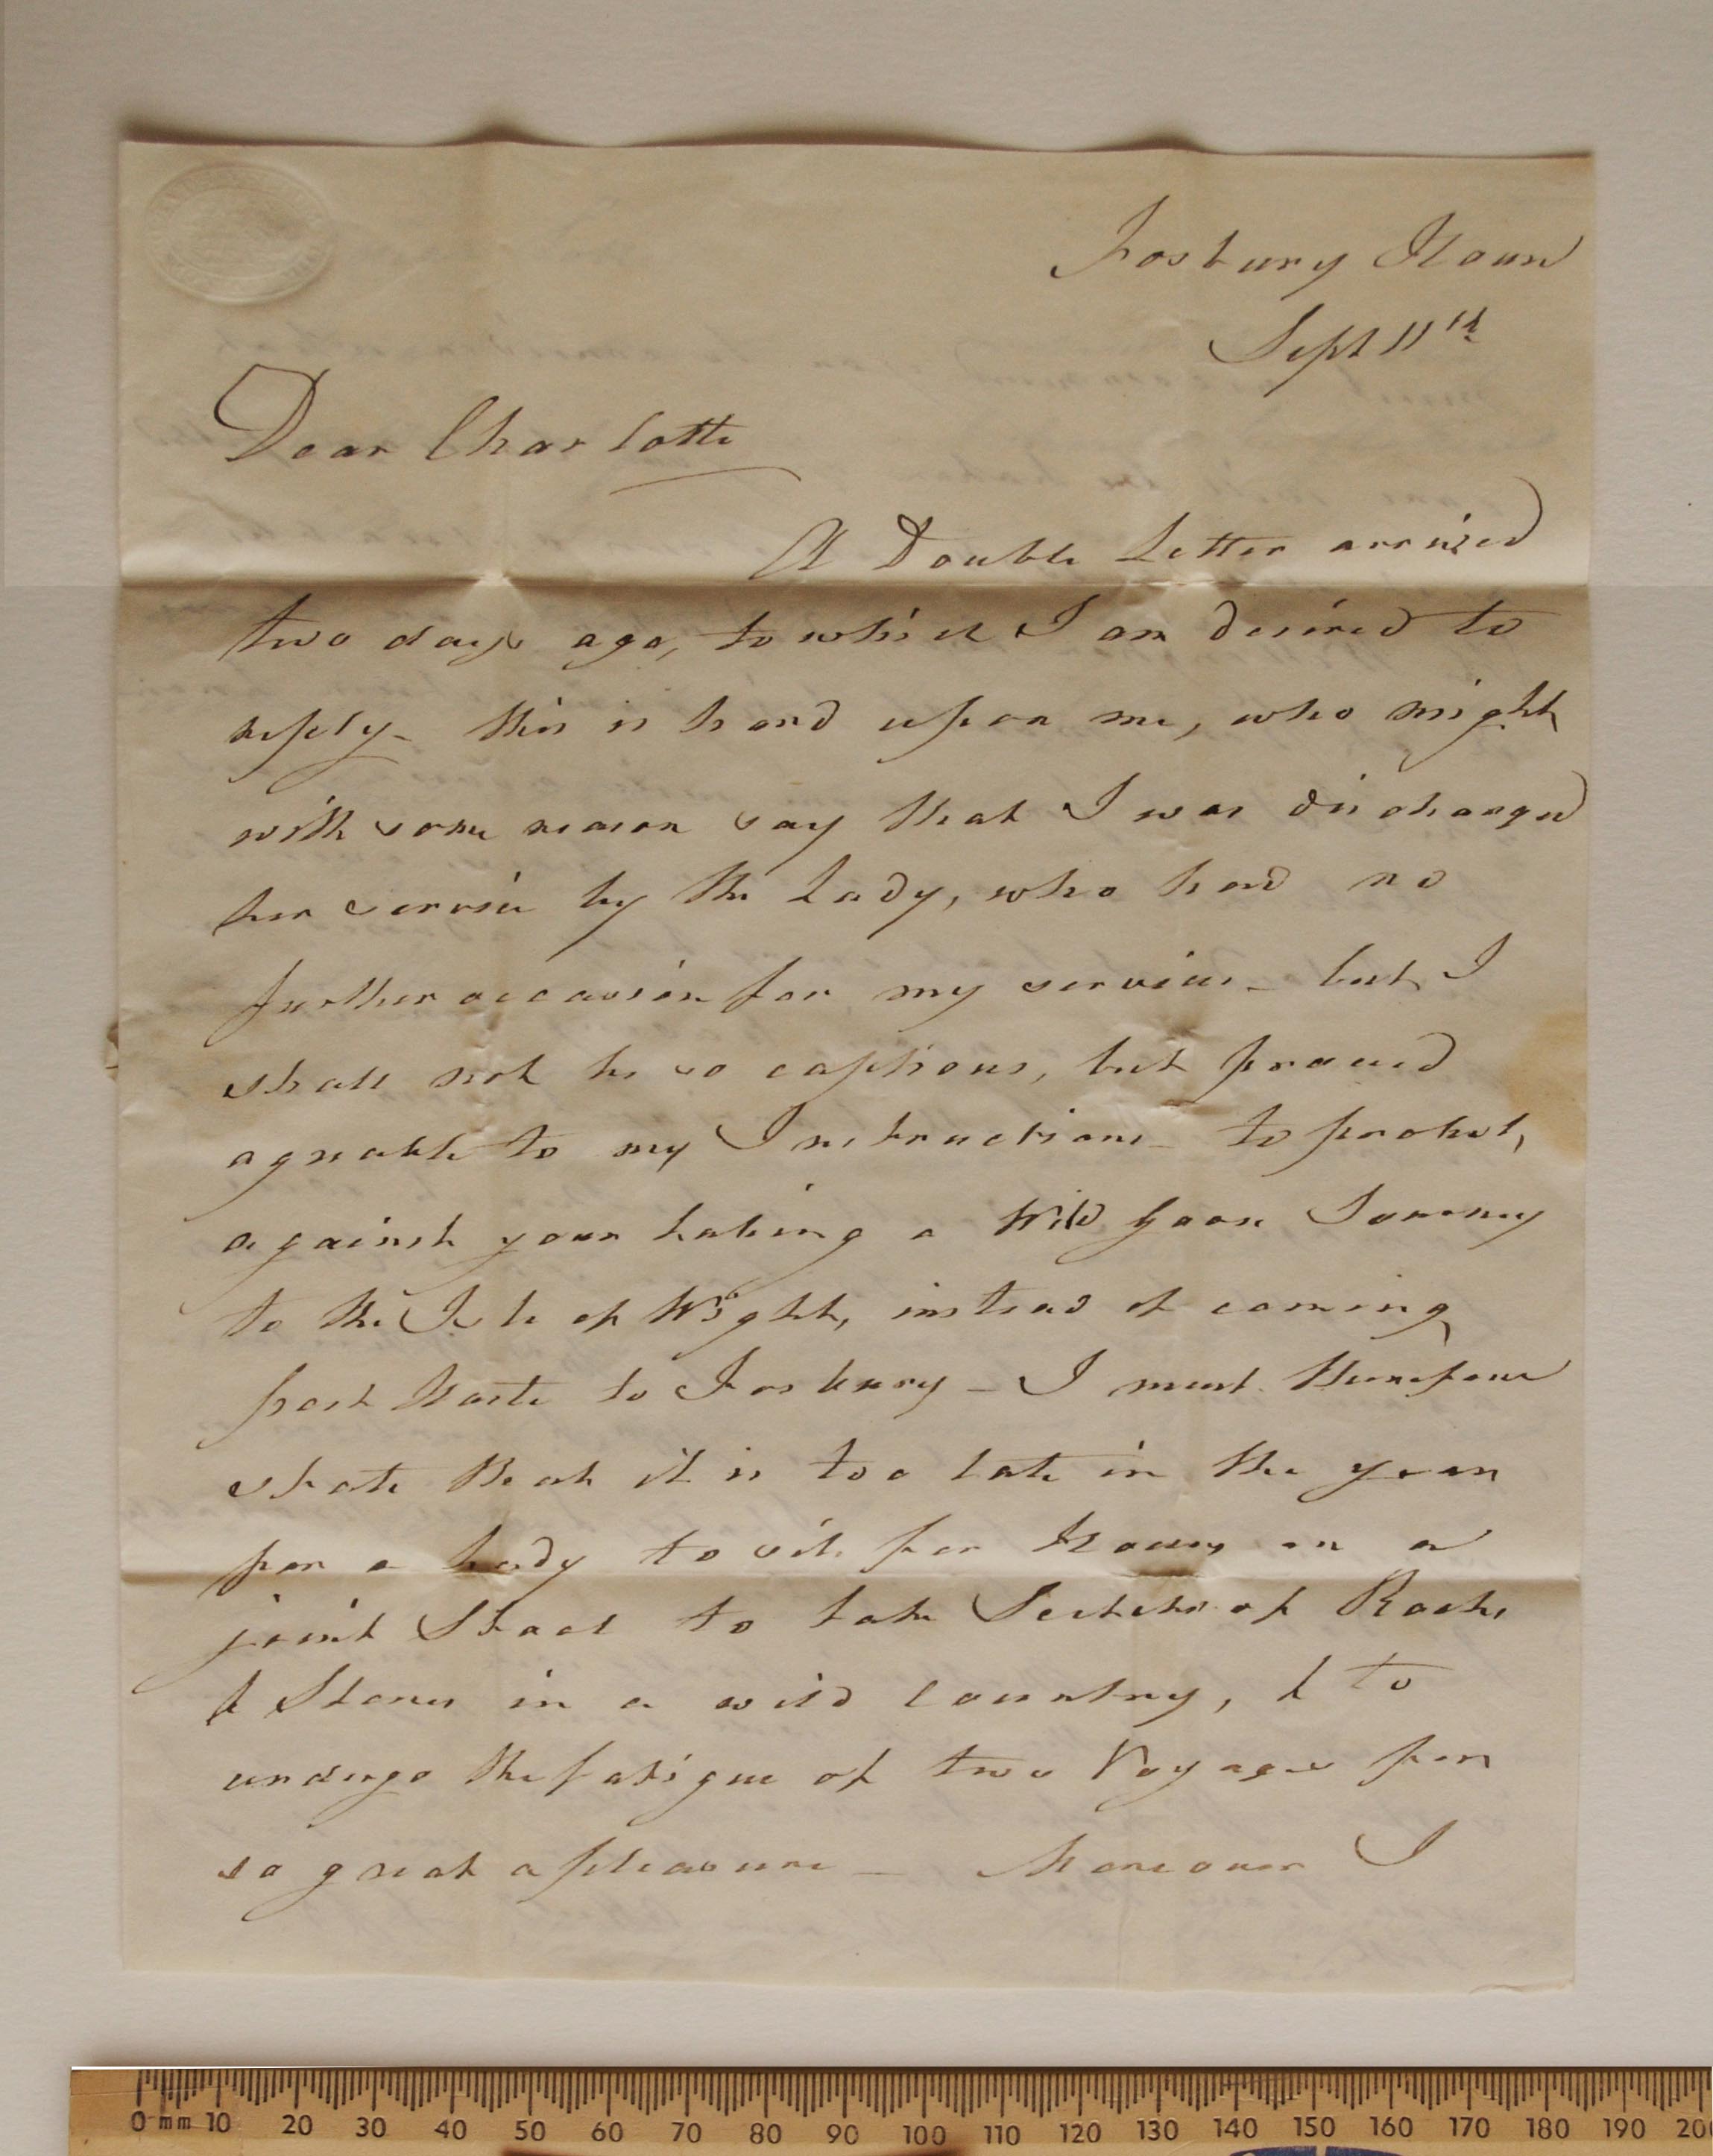 Fosbury House
Sept 11th
Dear Charlotte
A Double Letter arrived
two days ago, to which I am desired to
reply - this is hard upon me, who might
with some reason say that I was discharged
her service by the Lady, who had no
further occasion for my services - but I
shall not be so captious, but proceed
agreable to my Instructions - to protest,
against your taking a Wild Goose Journey
to the Isle of Wight, instead of coming
post haste to Fosbury - I must therefore
state that it is too late in the year
for a Lady to sit for Hours on a
joint Stool to take Sketches of Rocks
& Stones in a wild Country, & to
undergo the fatigue of two Voyages for
so great a pleasure - Moreover I
0 mm 10 20 30 40 50 60 70 80 90 100 110 120 130 140 150 160 170 180 190 200